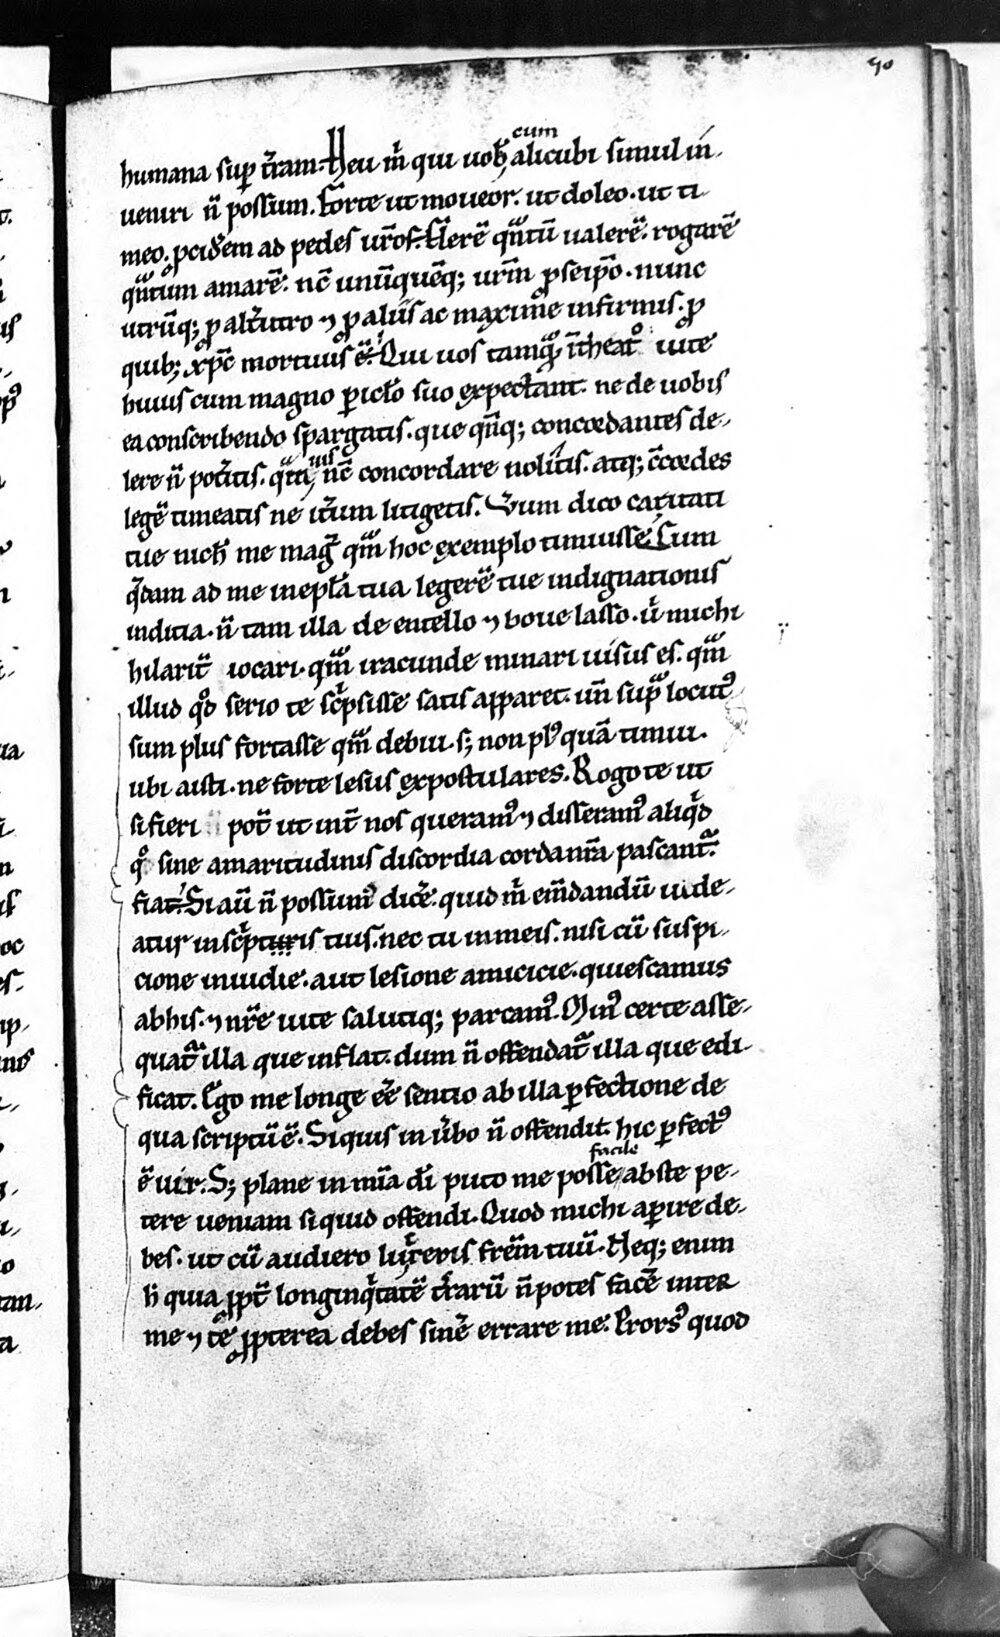 50
cum
humana suꝑ t̄ram. Heu m̄ qui uoƀ alicubi simul in-
ueniri n̄ possum. Forte ut moueor. ut doleo. ut ti
meo. ꝓcid̄em ad pedes ur̄os. fler̄e qͣntū ualer̄e. rogar̄e
qͣntum amar̄e. nc̄ unūquēq; ur̄m ꝓ seip̄o. nunc
utrūq; ꝓ alt̄utro ⁊ ꝓ aliis ac maxime infirmis. ꝓ
quib; xp̄c mortuus ē. Qui uos tamqͣm ī theatͦ uite
huius cum magno ꝑiclo suo expectant. ne de uobis
ea conscribendo spargatis. que qn̄q; concordantes de-
lere n̄ pot̄itis. qͣm
uis
nc̄ concordare nolitis. atq; c̄cordes
leger̄e timeatis ne it̄um litigetis. Verum dico caritati
tue nich̄ me maḡ qͣm hoc exemplo timuisse. Cum
q̄dam ad me in epl̄a tua leger̄e tue indignationis
inditia. n̄ tam illa de entello ⁊ boue lasso. u̇ michi
hilarit̄ iocari. qͣm iracunde minari uisus es. qͣm
illud qͦd serio te sc̓psisse satis apparet. un̄ supͣ locutꝰ
sum plus fortasse qͣm debui. s; non plꝰ quā timui.
ubi aisti. ne forte lesus expostulares. Rogo te ut
si fieri pot̄ ut int̄ nos queramꝰ ⁊ disseramꝰ aliq̓d
qͦ sine amaritudinis discordia corda nr̄a pascantᷣ.
fiat. Si aū n̄ possumꝰ dic̄e. quid m̄ em̄dandū uide-
atur in sc̓pturis tuis. nec tu in meis. nisi cū suspi-
cione inuidie. aut lesione amicicie. quiescamus
ab his. ⁊ nr̄e uite salutiq; parcamꝰ. Minꝰ certe asse-
quatᷣ illa que inflat. dum n̄ offendatᷣ illa que edi-
ficat. Ego me longe ee̅ sentio ab illa ꝑfectione de
qua scriptū ē. Siquis in u̇bo n̄ offendit. hic ꝑfectꝰ
facile
ē uir. S; plane in mīa dī puto me posse abs te pe-
tere ueniam si quid offendi. Quod michi aꝑire de-
bes. ut cū audiero luc̓eris fr̄em tuū. Neq; enim
h̄ quia ꝓpt̄ longinq̓tatē t̄rarū n̄ potes fac̄e inter
me ⁊ te ꝓpterea debes sin̄e errare me. Prorsꝰ quod